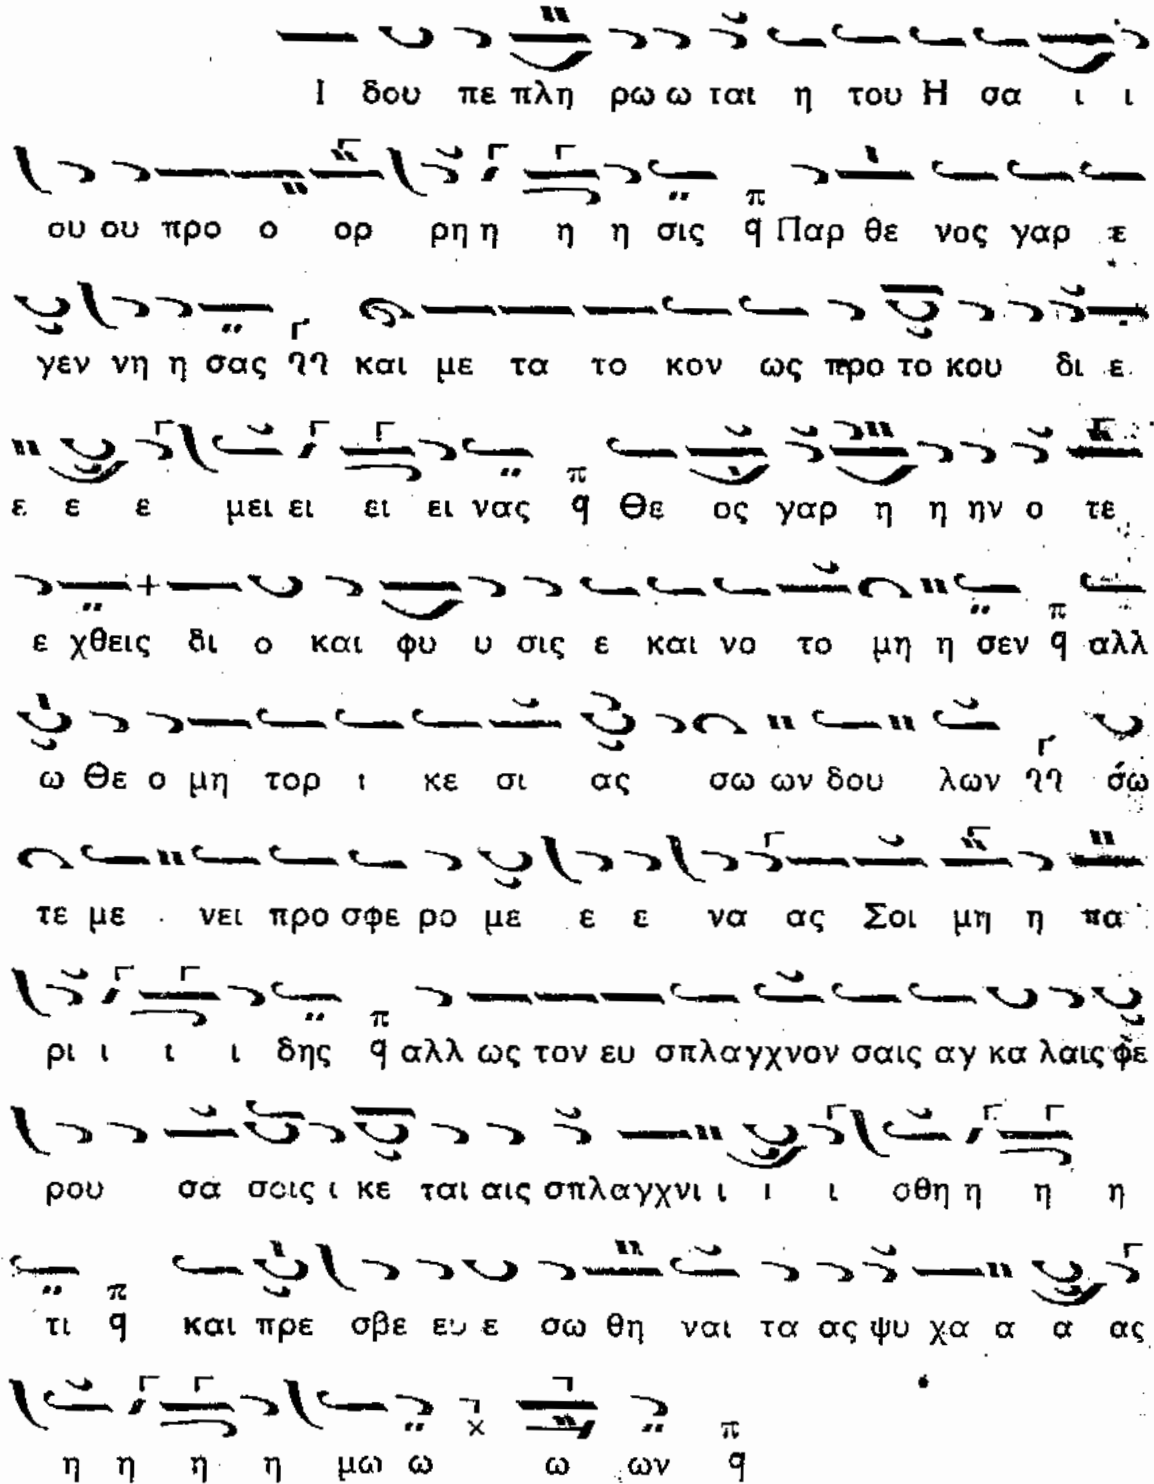 Ι δου πε πλη ρω ω ται η του Η σα ι ι
ου ου προ ο ορ ρη η η η σις π q Παρ θε νος γαρ ε
γεν νη η σας Γ ΓΓ και με τα το κον ως προ το κου δι ε
ε ε ε μει ει ει ει νας π q Θε ος γαρ η η ην ο τε
ε χθεις δι ο και φυ υ σις ε και νο το μη η σεν π q αλλ
ω Θε ο μη τορ ι κε σι ας σω ων δου λων Γ ΓΓ σω
τε με νει προ σφε ρο με ε ε να ας Σοι μη η πα
ρι ι ι ι δης π q αλλ ως τον ευ σπλαγχνον σαις αγ κα λαις φε
ρου σα σοις ι κε ται αις σπλαγχνι ι ι ι σθη η η η
τι π q και πρε σβε ευ ε σω θη ναι τα ας ψυ χα α α ας
η η η η μω ω ω ων π q